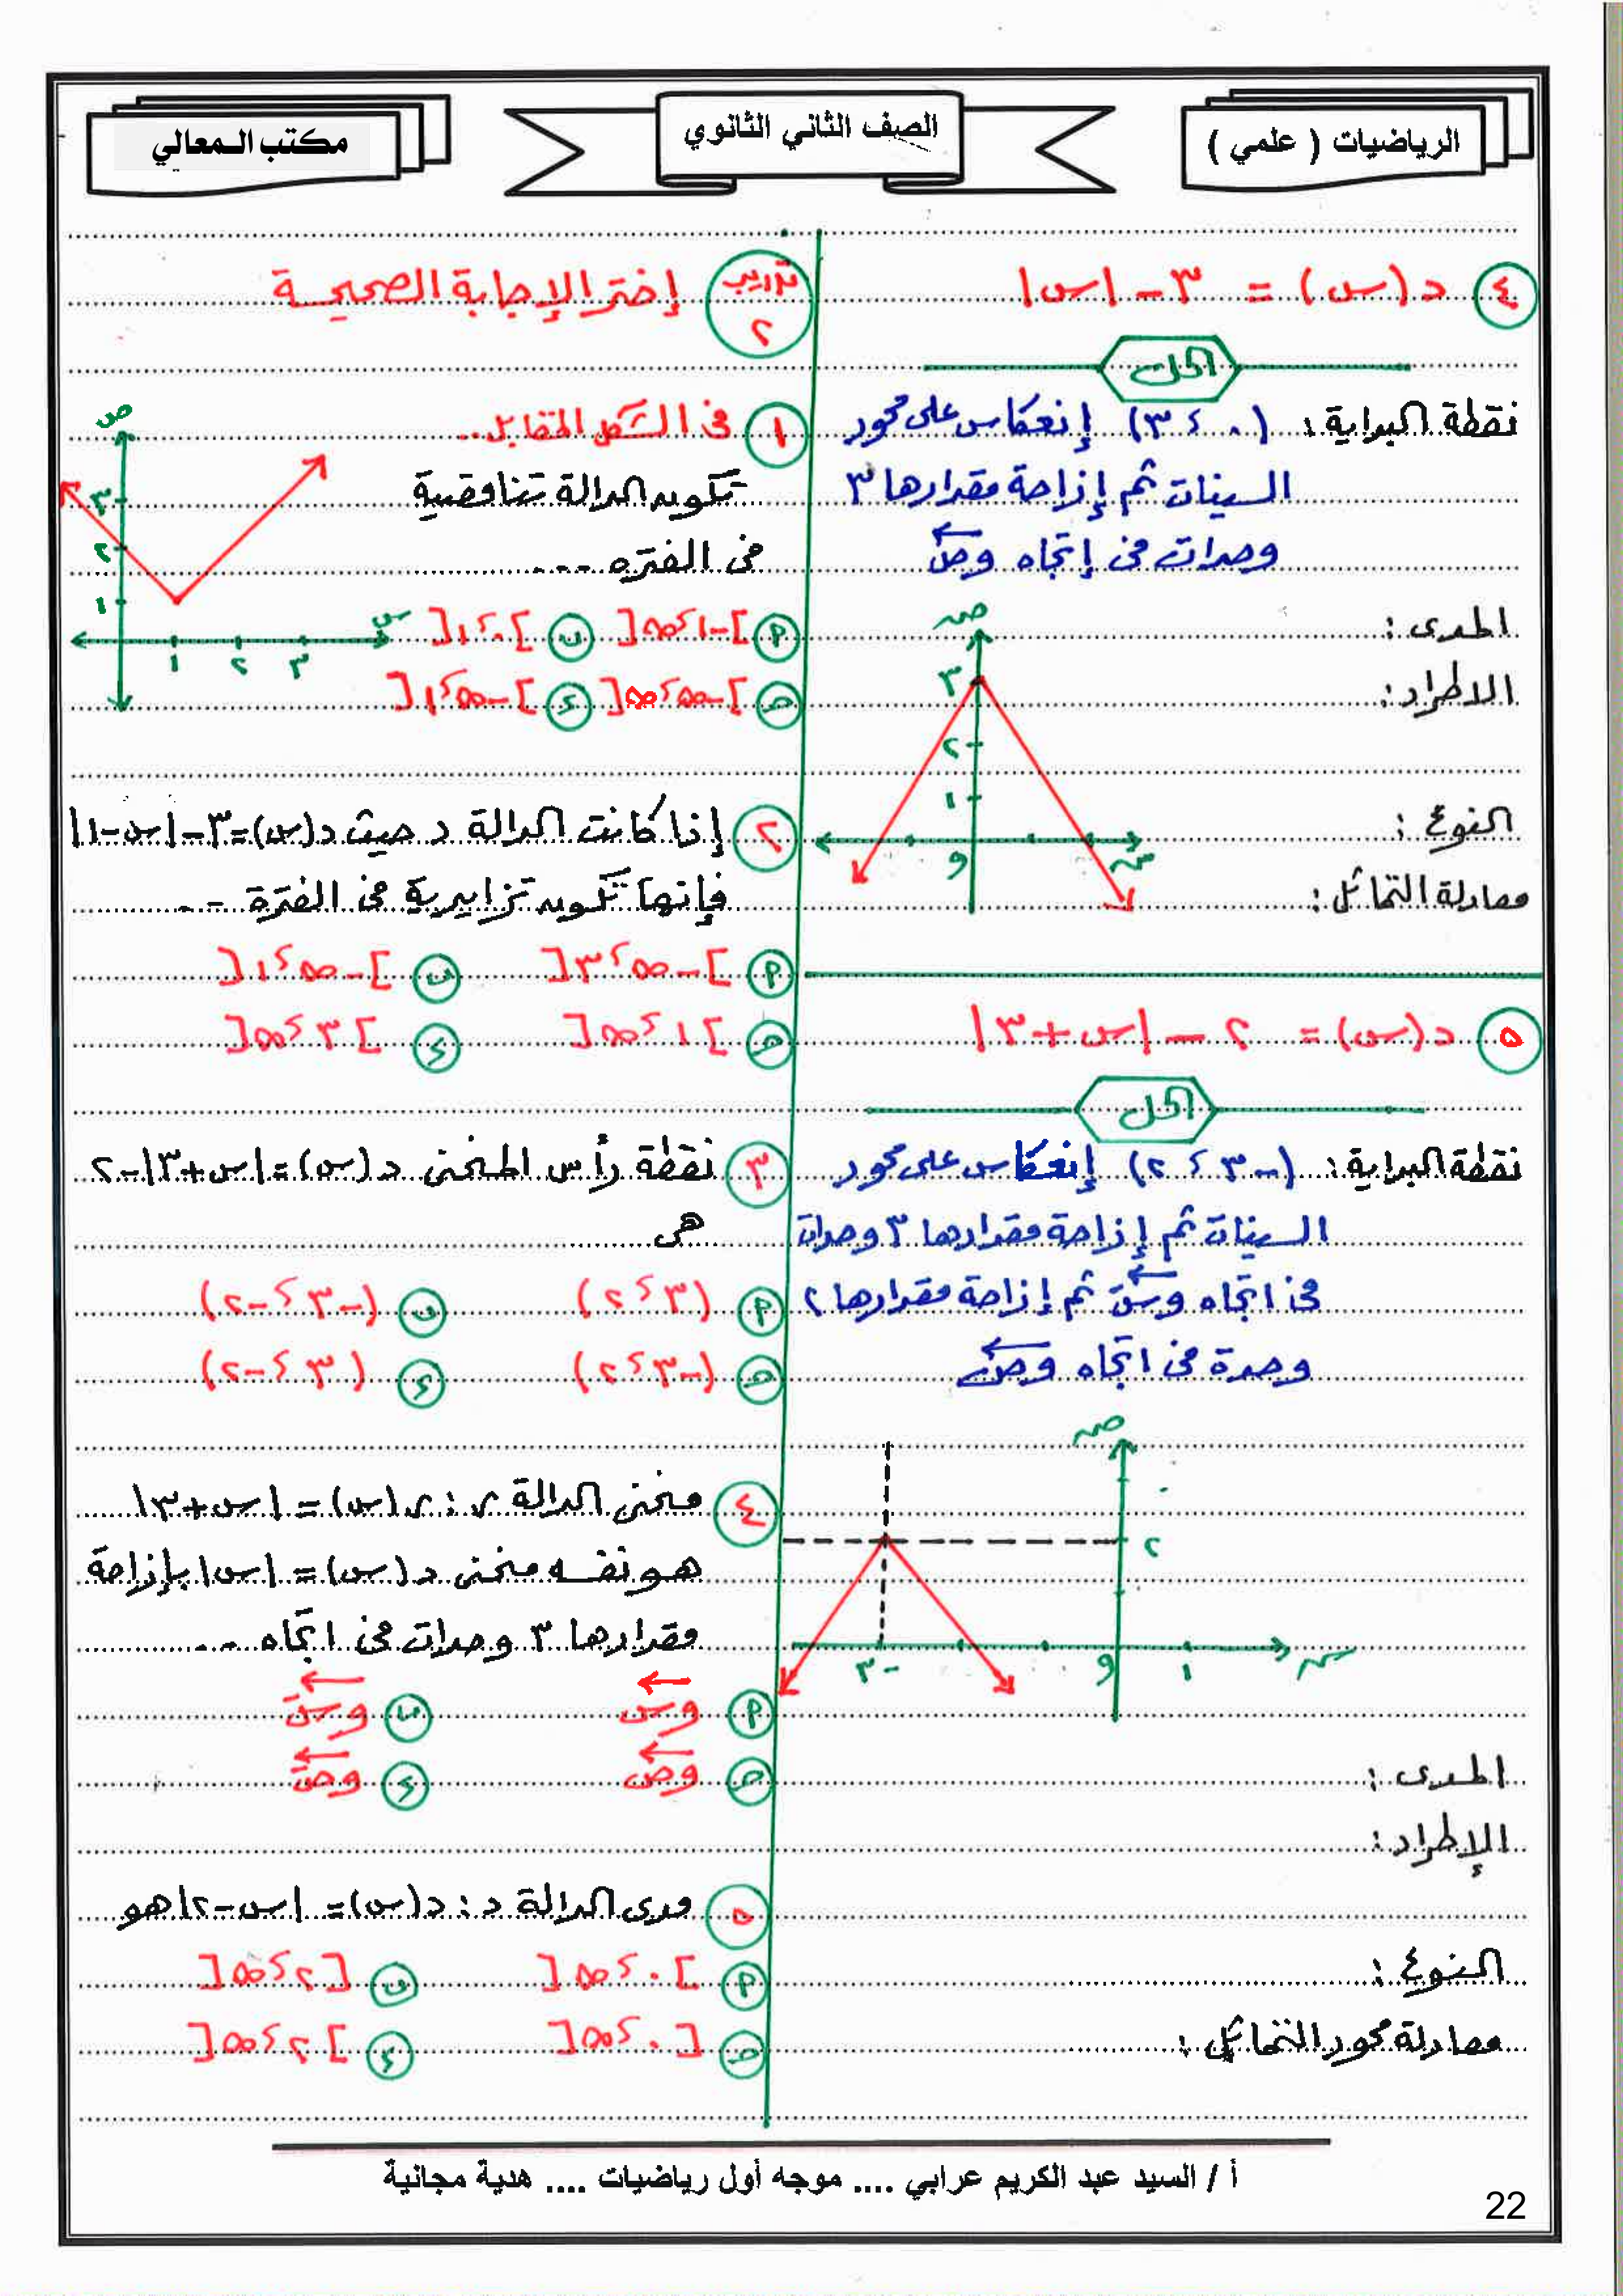 الرياضيات ( علمي )
الصف الثاني الثانوي
مكتب المعالي
٤ د(س) = ٣ - |س|
الحل
نقطة البداية : (٠ ، ٣) إنعكاس على محور
السينات ثم إزاحة مقدارها ٣
وحدات فى إتجاه وصَ
المدى :
الاطراد :
النوع :
معادلة التماثل :
ص
٣
٢
١
و
س
٥ د(س) = ٢ - |س+٣|
الحل
نقطة البداية : (-٣ ، ٢) إنعكاس على محور
السينات ثم إزاحة مقدارها ٣ وحدات
فى اتجاه وسَ ثم إزاحة مقدارها ٢
وحدة فى اتجاه وص
ص
٢
-٣
و
١
س
المدى :
الإطراد :
النوع :
معادلة محور التماثل :
تدريب ٢ إختر الإجابة الصحيحة
١ فى الشكل المقابل ..
تكون الدالة تناقصية
فى الفتره ...
ص
٣
٢
١
١ ٢ ٣
س
P ]-١ ، ∞[ ب ]٠ ، ١[
ح ]-∞ ، ∞[ ء ]-∞ ، ١[
٢ إذا كانت الدالة د حيث د(س)=٣-|س-١|
فإنها تكون تزايدية فى الفترة ...
P ]-∞ ، ٣[ ب ]-∞ ، ١[
ح ]١ ، ∞[ ء ]٣ ، ∞[
٣ نقطة رأس المنحنى د(س)=|س+٣|-٢
هى
P (٣ ، ٢) ب (-٣ ، -٢)
ح (-٣ ، ٢) ء (٣ ، -٢)
٤ منحنى الدالة ر : ر(س) = |س+٣|
هو نفسه منحنى د(س) = |س| بإزاحة
مقدارها ٣ وحدات فى اتجاه ...
P وس ب وسَ
ح وص ء وصَ
٥ مدى الدالة د : د(س) = |س-٢| هو
P ]٠ ، ∞[ ب [٢ ، ∞[
ح [٠ ، ∞[ ء ]٢ ، ∞[
أ / السيد عبد الكريم عرابي .... موجه أول رياضيات .... هدية مجانية
22